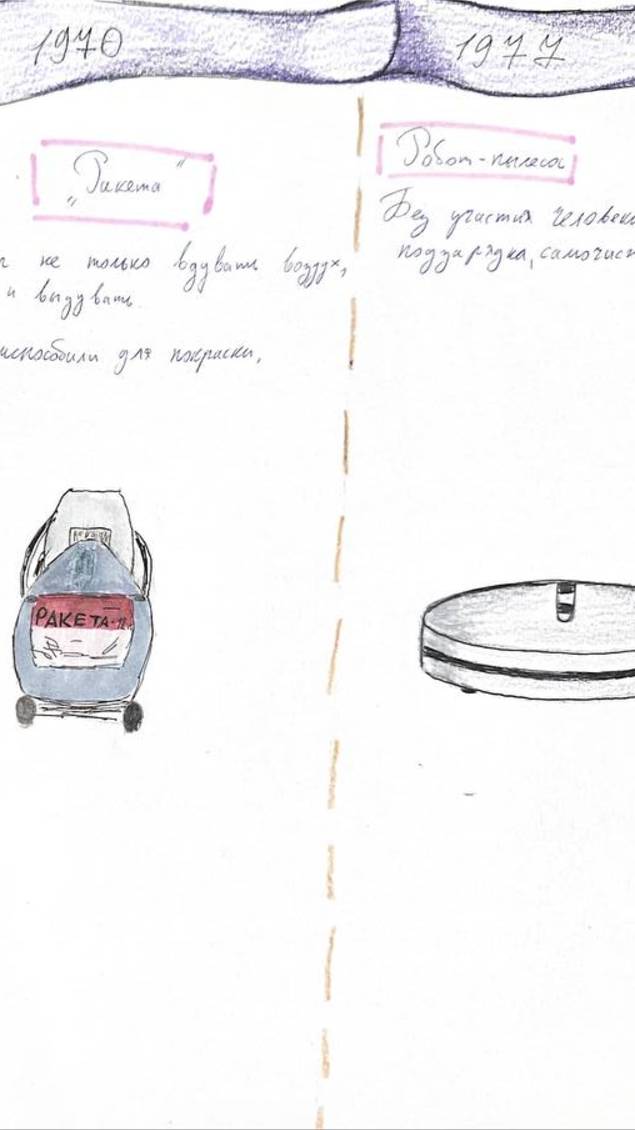 1970
"Ракета"
не только вдувать воздух,
и выдувать
для покраски,
РАКЕТА-12
1977
Робот-пылесос
Без участия человека
подзарядка, самочист